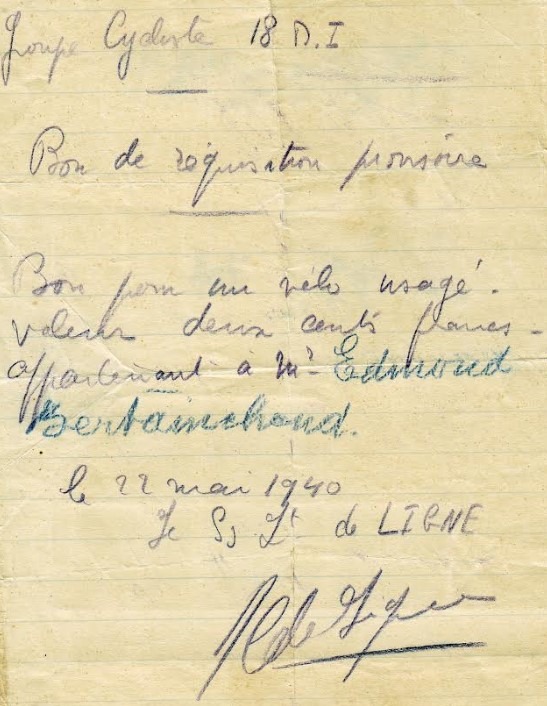 Groupe Cycliste 18 D.I
Bon de réquisition provisoire
Bon pour un vélo usagé.
valeur deux cents francs -
appartenant à Mr Edmond
Bertainchand.
le 22 mai 1940
Le Ss Lt de LIGNE
de Ligne